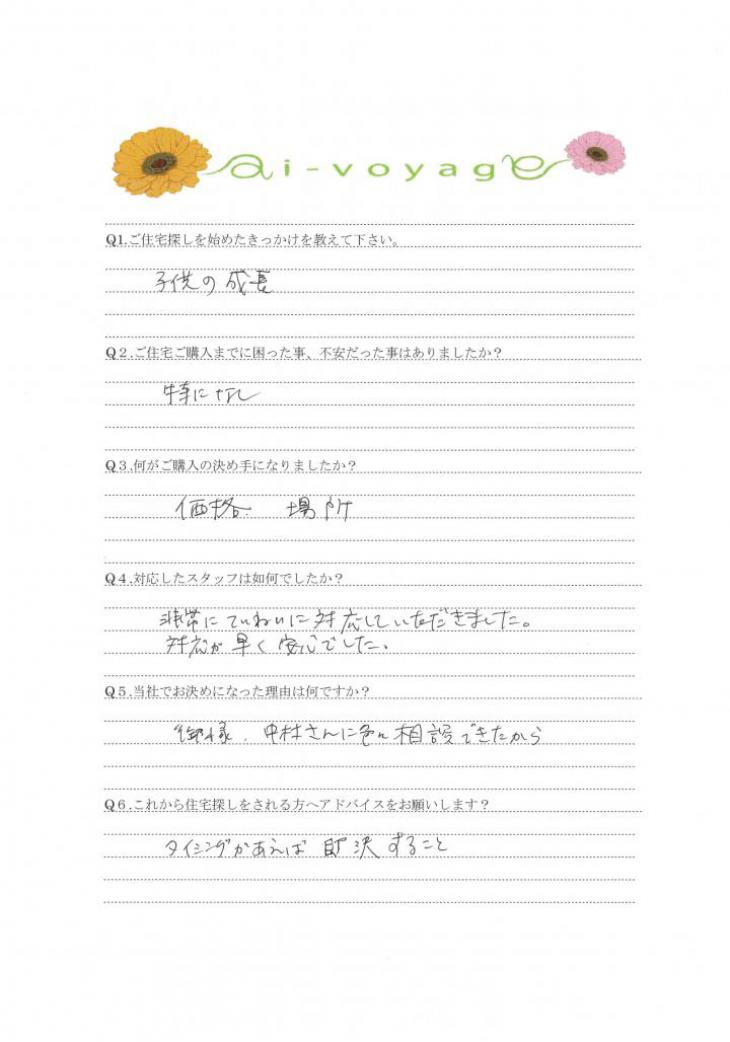 ai-voyage
Q1.ご住宅探しを始めたきっかけを教えて下さい。
子供の成長
Q2.ご住宅ご購入までに困った事、不安だった事はありましたか？
特になし
Q3.何がご購入の決め手になりましたか？
価格 場所
Q4.対応したスタッフは如何でしたか？
非常にていねいに対応していただきました。
対応が早く安心でした。
Q5.当社でお決めになった理由は何ですか？
様．中村さんに色々相談できたから
Q6.これから住宅探しをされる方へアドバイスをお願いします？
タイミングがあえば即決すること